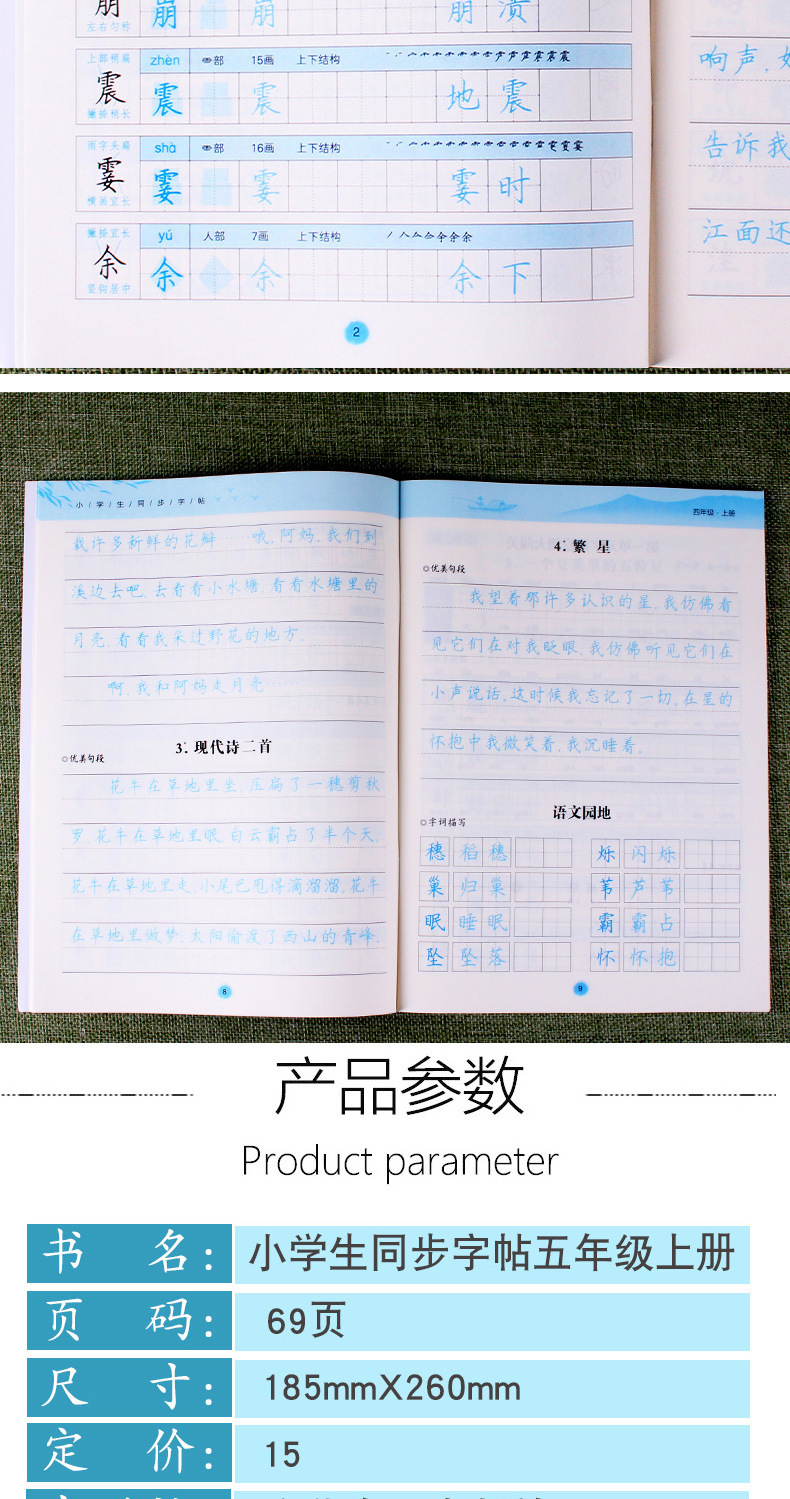 崩 崩 崩 崩 溃
左右匀称
上部稍扁 zhèn 部 15画 上下结构
震 震 震 地 震
撇捺稍长
雨字头扁 shà 部 16画 上下结构
霎 霎 霎 霎 时
横画宜长
撇捺宜长 yú 人部 7画 上下结构
余 余 余 余 下
竖钩居中
2
响声,
告诉我
江面还
小/学/生/同/步/字/帖
载许多新鲜的花瓣……哦,阿妈,我们到
溪边去吧,去看看小水塘,看看水塘里的
月亮,看看我采过野花的地方。
啊,我和阿妈走月亮……
3.现代诗二首
○优美句段
花牛在草地里坐,压扁了一穗剪秋
罗。花牛在草地里眠,白云霸占了半个天。
花牛在草地里走,小尾巴甩得滴溜溜。花牛
在草地里做梦,太阳偷渡了西山的青峰。
8
四年级·上册
4.繁 星
○优美句段
我望着那许多认识的星,我仿佛看
见它们在对我眨眼,我仿佛听见它们在
小声说话。这时候我忘记了一切。在星的
怀抱中我微笑着,我沉睡着。
语文园地
○字词描写
穗 稻穗 烁 闪烁
巢 归巢 苇 芦苇
眠 睡眠 霸 霸占
坠 坠落 怀 怀抱
9
产品参数
Product parameter
书 名: 小学生同步字帖五年级上册
页 码: 69页
尺 寸: 185mmX260mm
定 价: 15